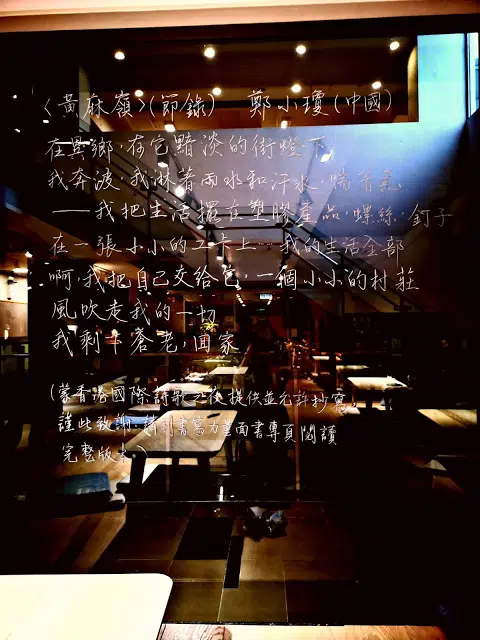 〈黃麻嶺〉(節錄)　鄭小瓊(中國)
在異鄉,在它黯淡的街燈下
我奔波,我淋著雨水和汗水,喘著氣
——我把生活擺在塑膠產品,螺絲,釘子
在一張小小的工卡上…我的生活全部
啊,我把自己交給它,一個小小的村莊
風吹走我的一切
我剩下蒼老,回家
(蒙香港國際詩歌之夜提供並允許抄寫,
謹此致謝。請到書寫力量面書專頁閱讀
完整版本。)